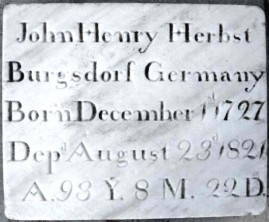 John Henry Herbst
Burgsdorf Germany
Born December 1st 1727
Depd August 23d 1821
A. 93 Y. 8 M. 22 D.